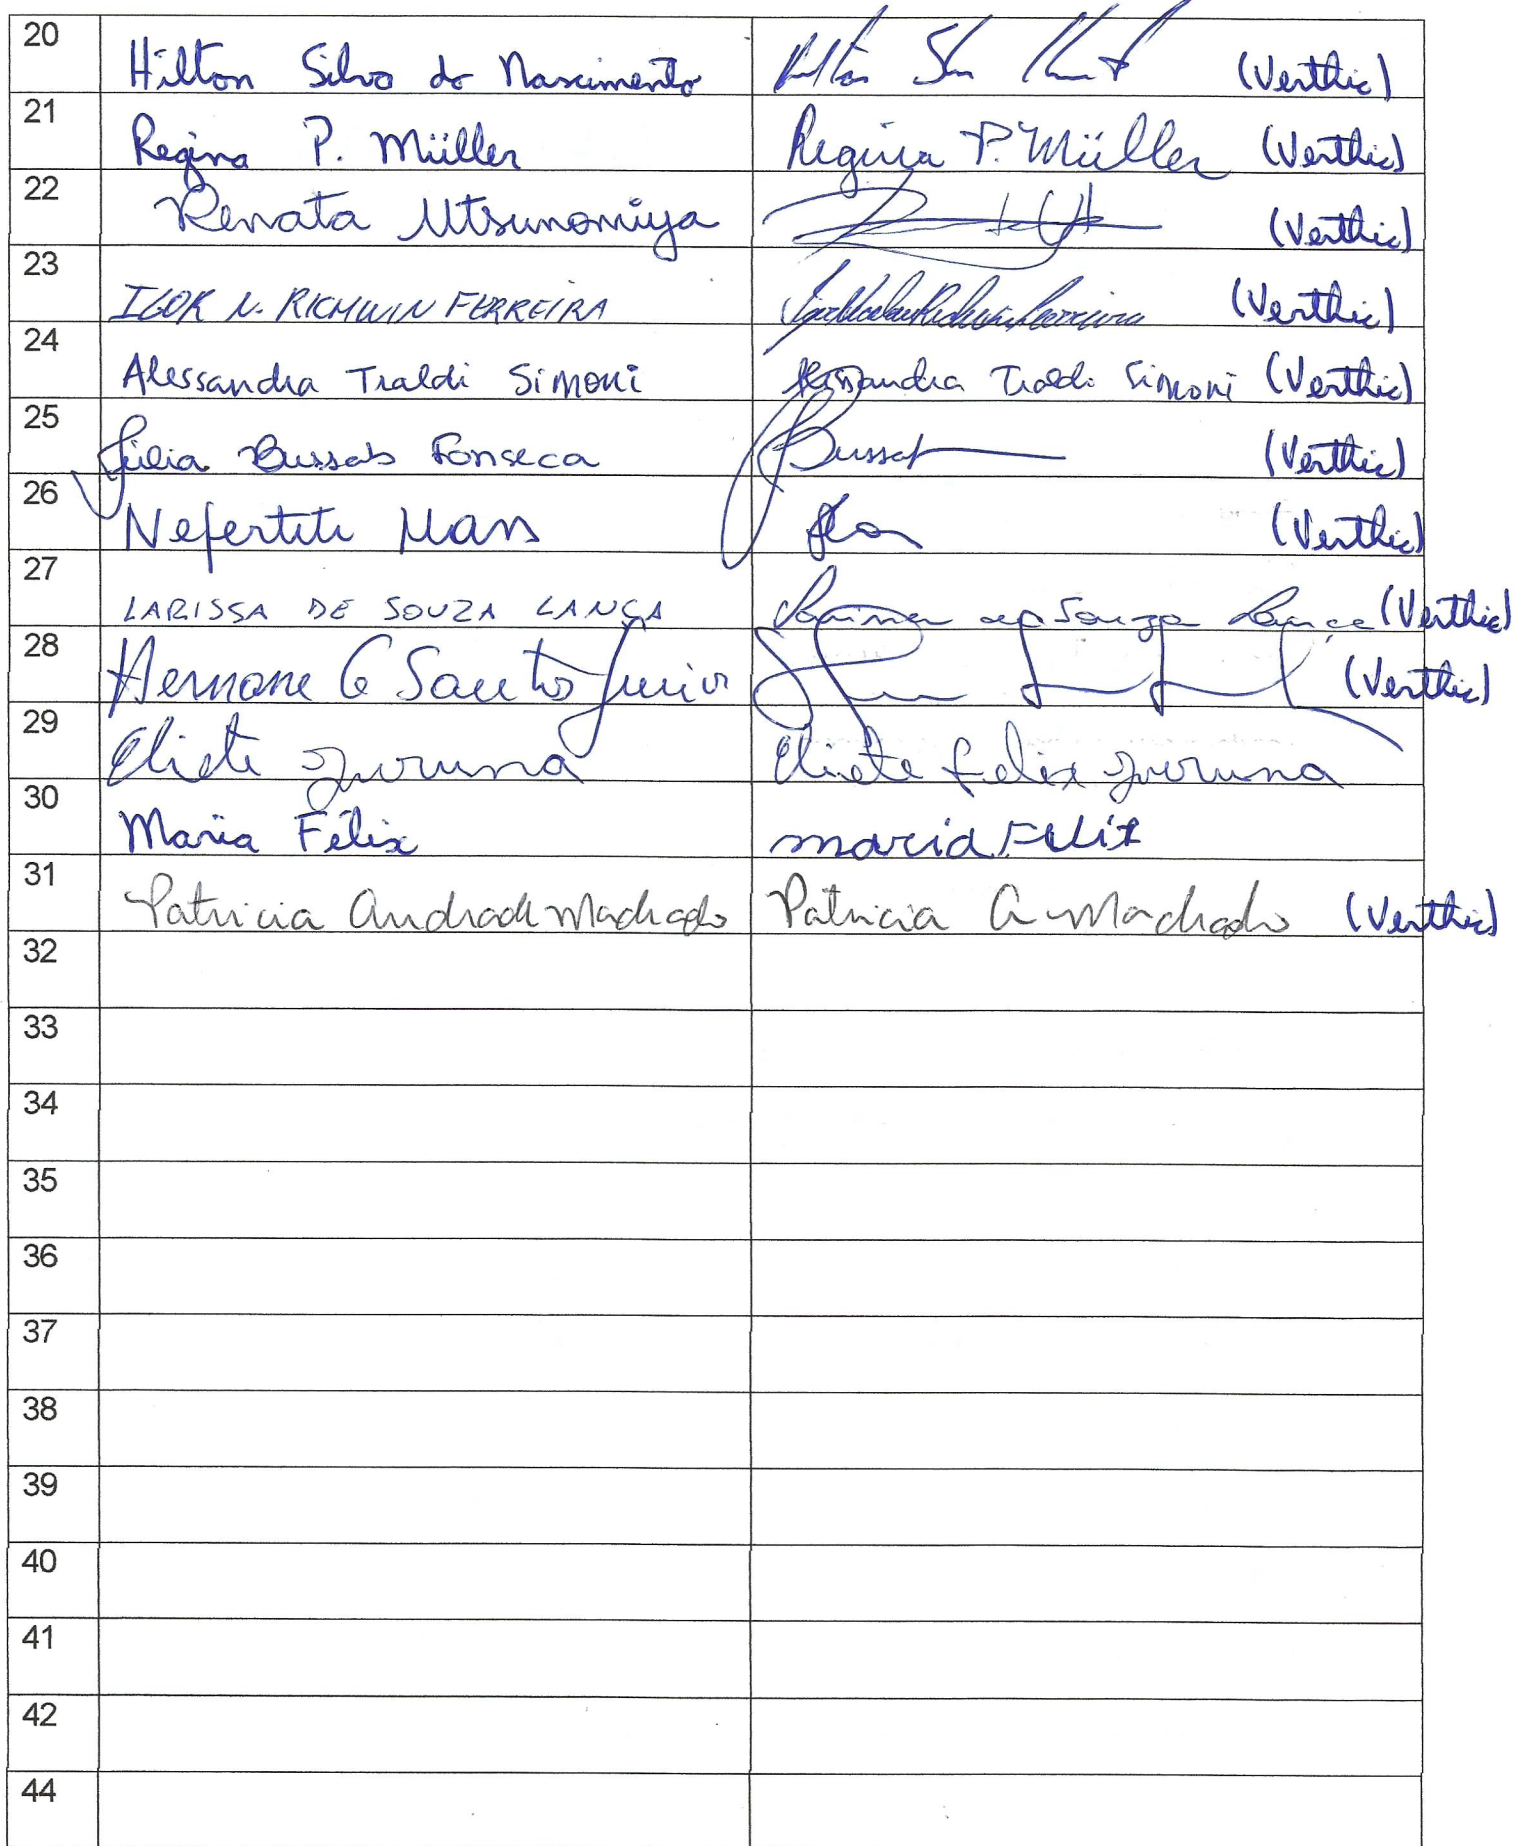 20 Hilton Silva do Nascimento (Verthic)
21 Regina P. Müller Regina P. Müller (Verthic)
22 Renata Utsunomiya (Verthic)
23 IGOR N. RICHWIN FERREIRA (Verthic)
24 Alessandra Traldi Simoni Alessandra Traldi Simoni (Verthic)
25 Júlia Bussab Fonseca Bussab (Verthic)
26 Nefertiti (Verthic)
27 LARISSA DE SOUZA LANÇA Larissa de Souza Lança (Verthic)
28 Hernane G Santos Junior (Verthic)
29 Eliete Juruna Eliete Felix Juruna
30 Maria Félix maria FELIX
31 Patricia Andrade Machado Patricia A Machado (Verthic)
32
33
34
35
36
37
38
39
40
41
42
44